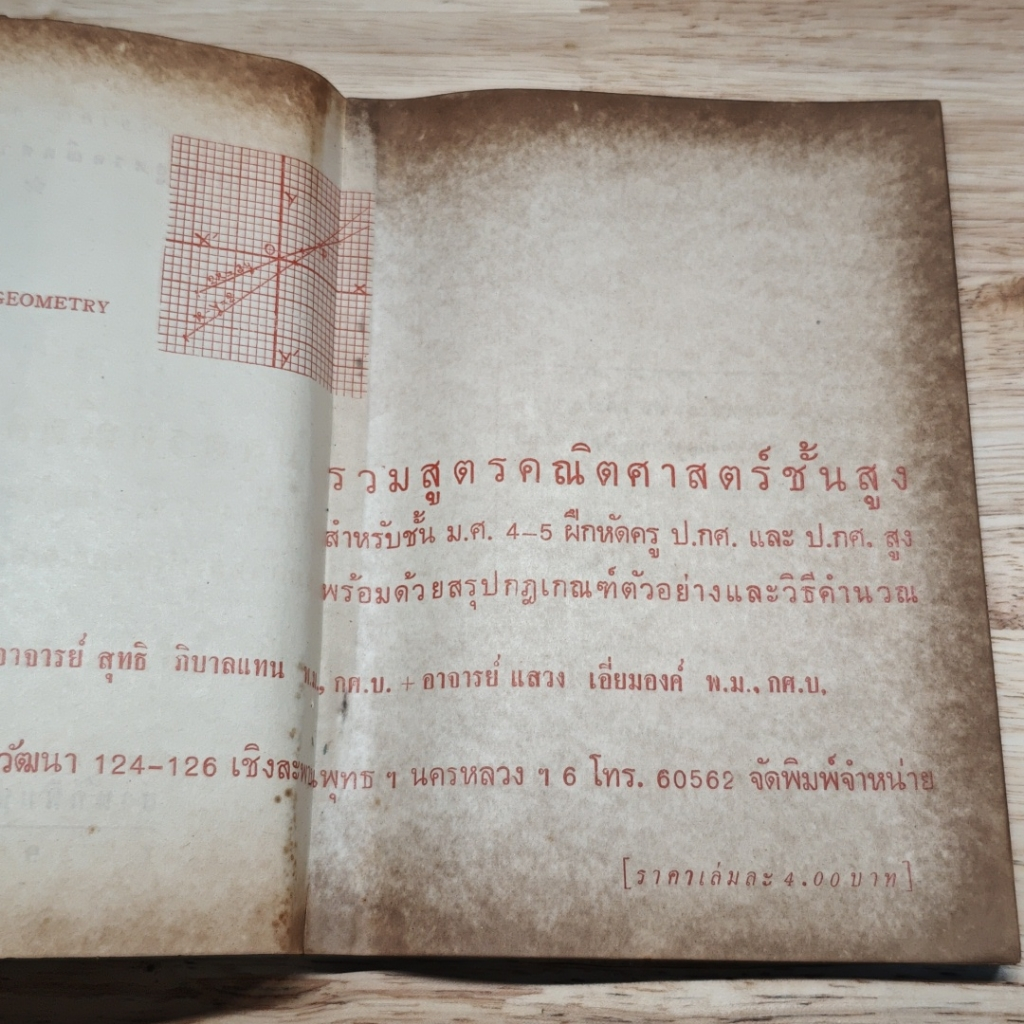 GEOMETRY
X' O Y
X
Y'
รวมสูตรคณิตศาสตร์ชั้นสูง
สำหรับชั้น ม.ศ. 4-5 ฝึกหัดครู ป.กศ. และ ป.กศ. สูง
พร้อมด้วยสรุปกฎเกณฑ์ตัวอย่างและวิธีคำนวณ
อาจารย์ สุทธิ ภิบาลแทน พ.ม., กศ.บ. + อาจารย์ แสวง เอี่ยมองค์ พ.ม., กศ.บ.
วัฒนา 124-126 เชิงสะพานพุทธ ฯ นครหลวง ฯ 6 โทร. 60562 จัดพิมพ์จำหน่าย
[ราคาเล่มละ 4.00 บาท]